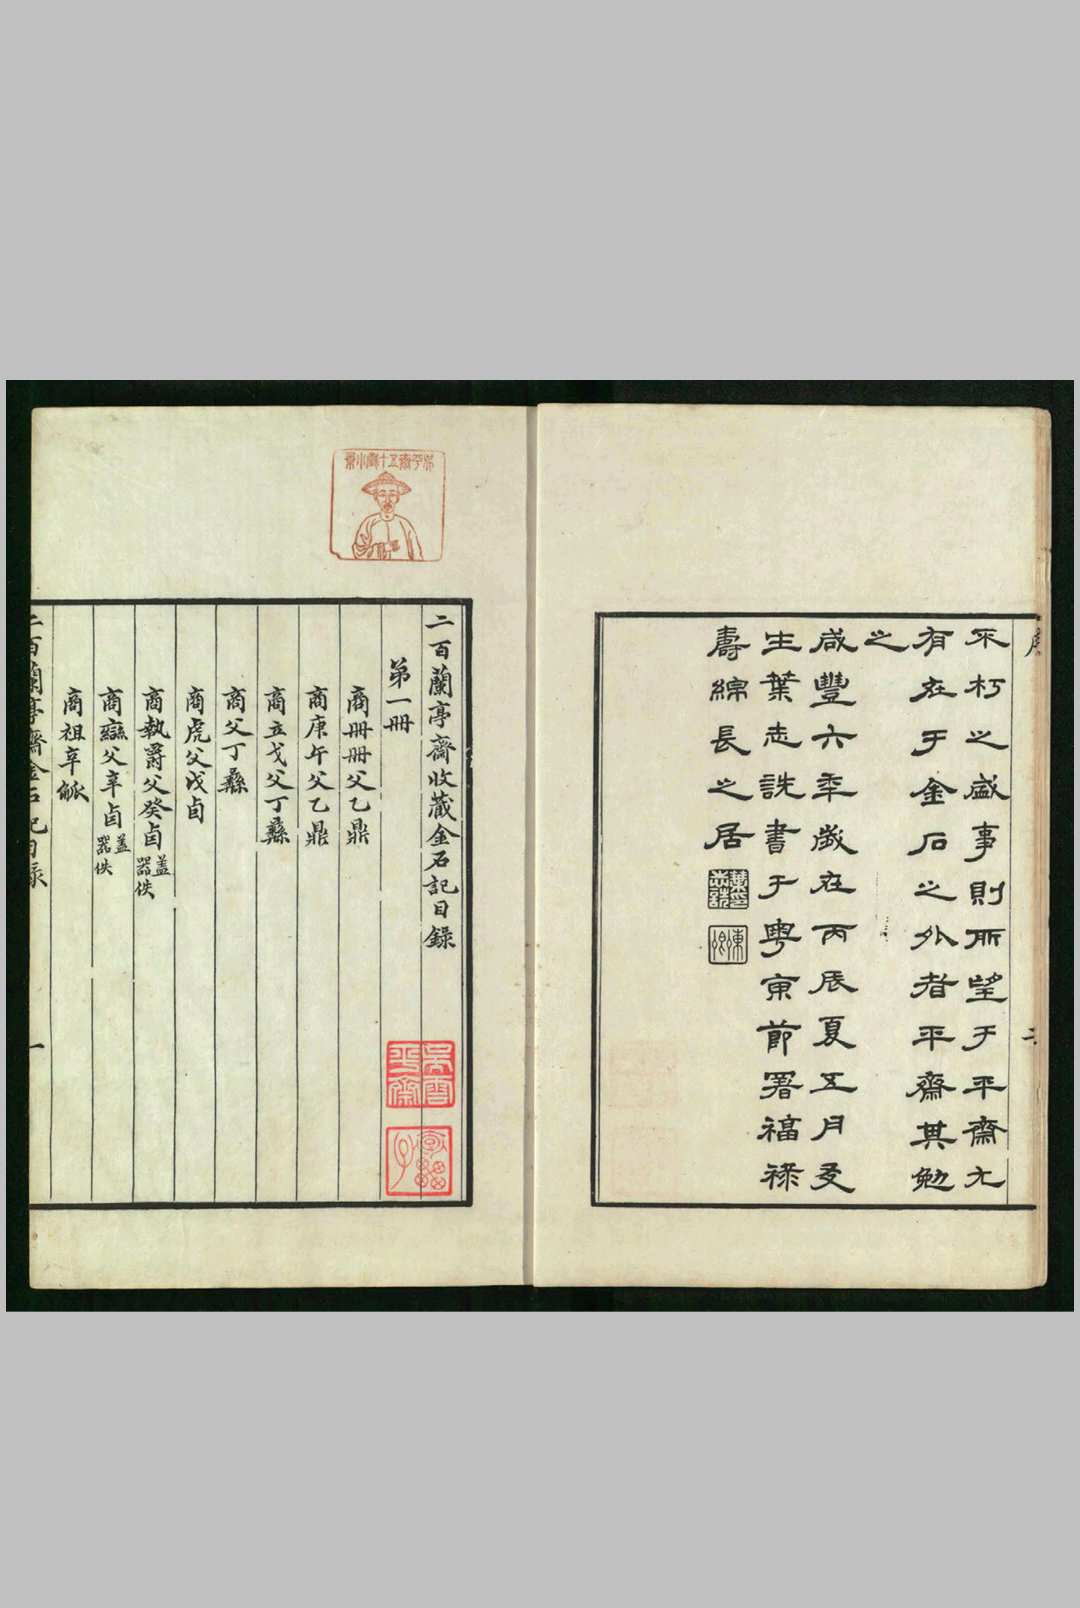 不朽之盛事則所望于平齋尤
有在于金石之外者平齋其勉
之
咸豐六年歲在丙辰夏五月友
生葉志詵書于粵東節署福祿
壽綿長之居
葉印志詵
東卿
平齋五十歲小景
二百蘭亭齋收藏金石記目錄
吳雲平齋
第一冊
商冊冊父乙鼎
商庚午父乙鼎
商立戈父丁彝
商父丁彝
商虎父戊卣
商執爵父癸卣 盖器佚
商䜌父辛卣 盖器佚
商祖辛觚
二百蘭亭齋金石記目錄 一